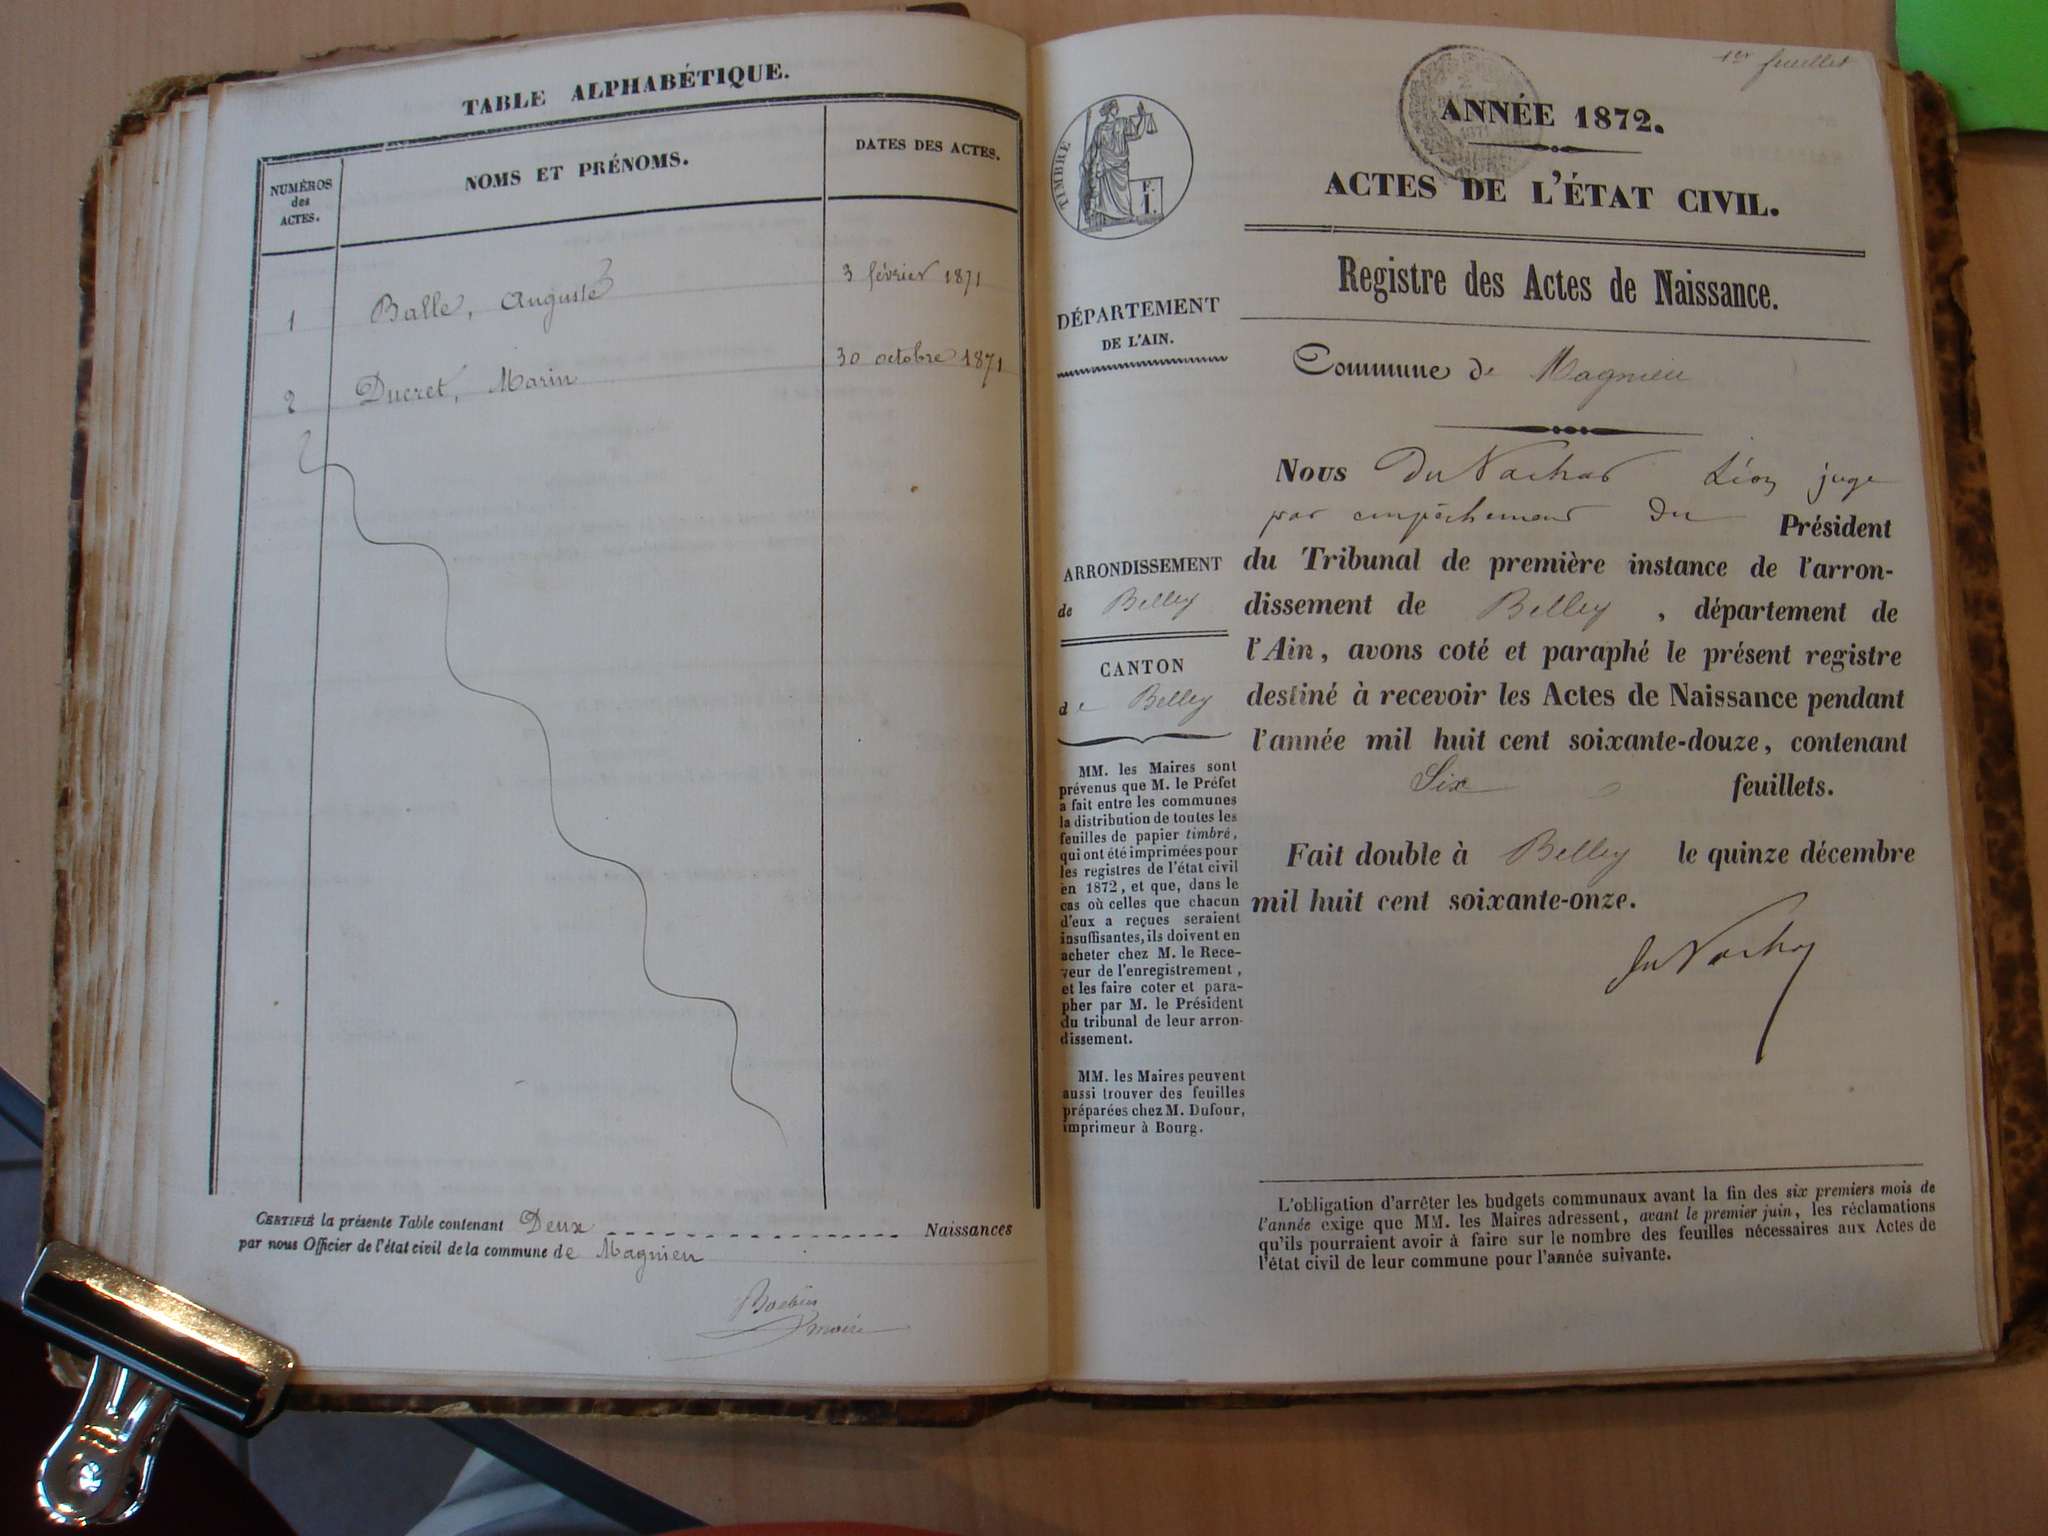 TABLE ALPHABÉTIQUE.
NUMÉROS
des
ACTES.
NOMS ET PRÉNOMS.
DATES DES ACTES.
1 Balle, Auguste 3 février 1871
2 Ducret, Marin 30 octobre 1871
CERTIFIÉ la présente Table contenant Deux Naissances
par nous Officier de l'état civil de la commune de Magnieu
maire
1er feuillet
TIMBRE
F.
I.
DÉPARTEMENT
DE L'AIN.
ARRONDISSEMENT
de Belley
CANTON
de Belley
MM. les Maires sont
prévenus que M. le Préfet
a fait entre les communes
la distribution de toutes les
feuilles de papier timbré,
qui ont été imprimées pour
les registres de l'état civil
en 1872, et que, dans le
cas où celles que chacun
d'eux a reçues seraient
insuffisantes, ils doivent en
acheter chez M. le Rece-
veur de l'enregistrement,
et les faire coter et para-
pher par M. le Président
du tribunal de leur arron-
dissement.
MM. les Maires peuvent
aussi trouver des feuilles
préparées chez M. Dufour,
imprimeur à Bourg.
ANNÉE 1872.
ACTES DE L'ÉTAT CIVIL.
Registre des Actes de Naissance.
Commune de Magnieu
Nous Du Nachat Léon juge
par empêchement du Président
du Tribunal de première instance de l'arron-
dissement de Belley, département de
l'Ain, avons coté et paraphé le présent registre
destiné à recevoir les Actes de Naissance pendant
l'année mil huit cent soixante-douze, contenant
Six feuillets.
Fait double à Belley le quinze décembre
mil huit cent soixante-onze.
L'obligation d'arrêter les budgets communaux avant la fin des six premiers mois de
l'année exige que MM. les Maires adressent, avant le premier juin, les réclamations
qu'ils pourraient avoir à faire sur le nombre des feuilles nécessaires aux Actes de
l'état civil de leur commune pour l'année suivante.